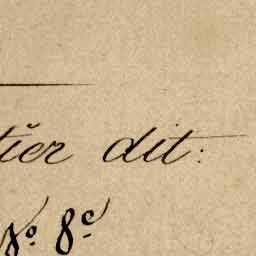 tier dit:
No. 8c